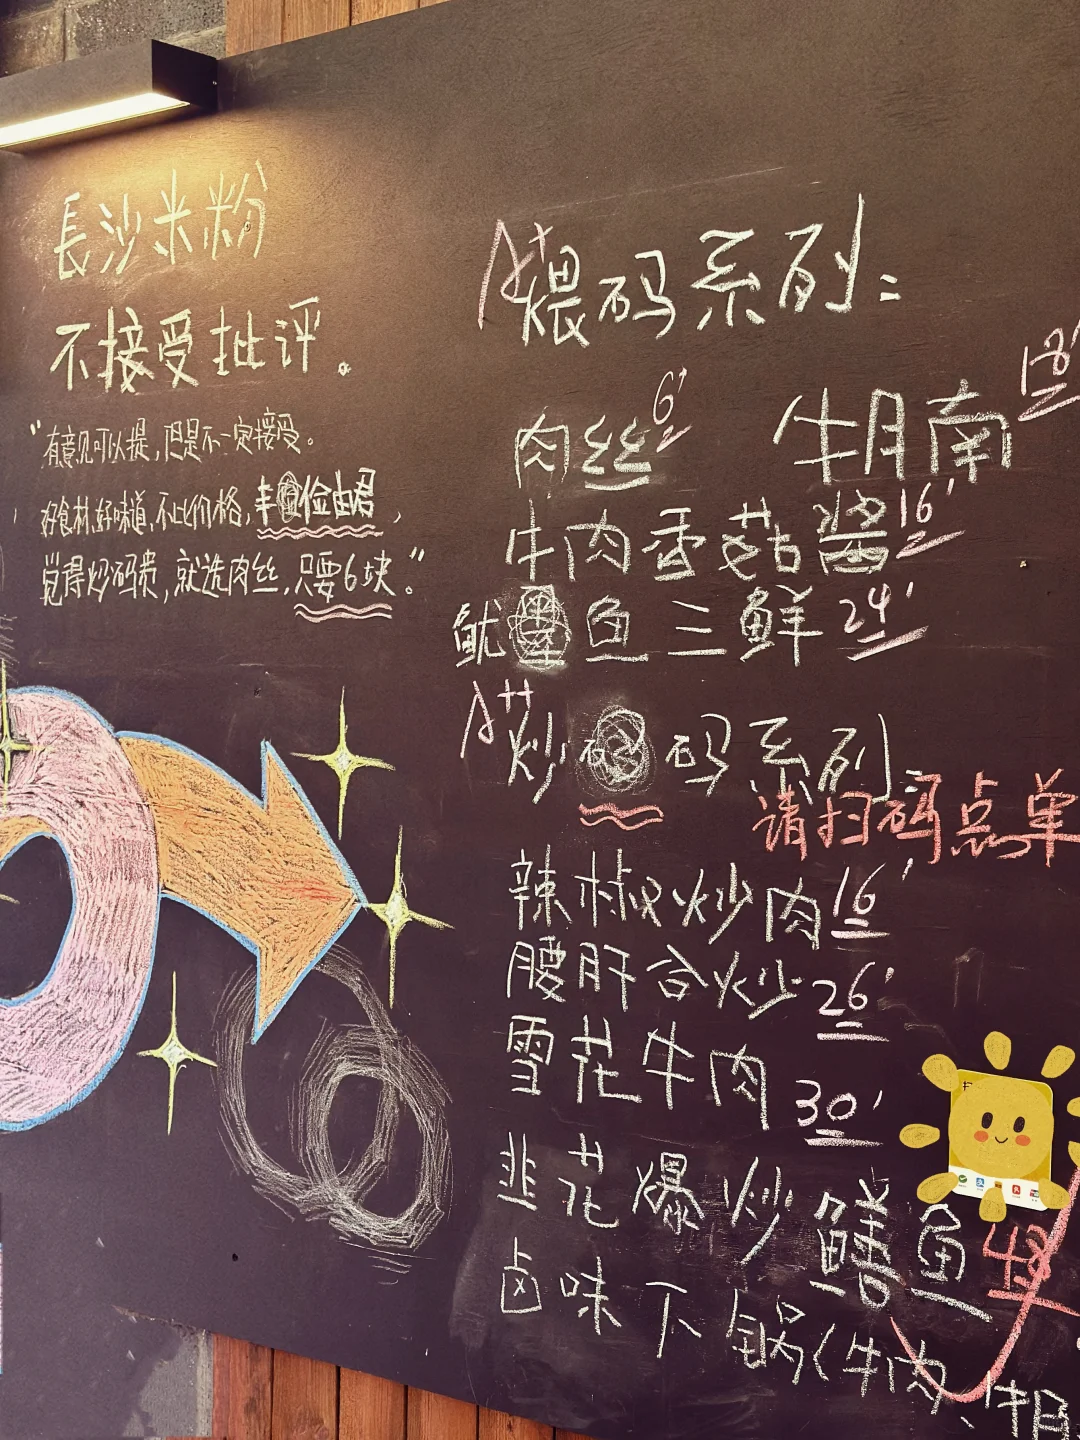 長沙米粉
不接受批评。
“有意见可以提，但是不一定接受。
好食材，好味道，不比价格，丰俭由君，
觉得炒码贵，就选肉丝，只要6块。”
煨码系列：
肉丝6' 牛腩18'
牛肉香菇酱16'
鱿鱼三鲜24'
炒码系列
请扫码点单
辣椒炒肉16'
腰肝合炒26'
雪花牛肉30'
韭花爆炒鳝鱼
卤味下锅（牛肉、牛